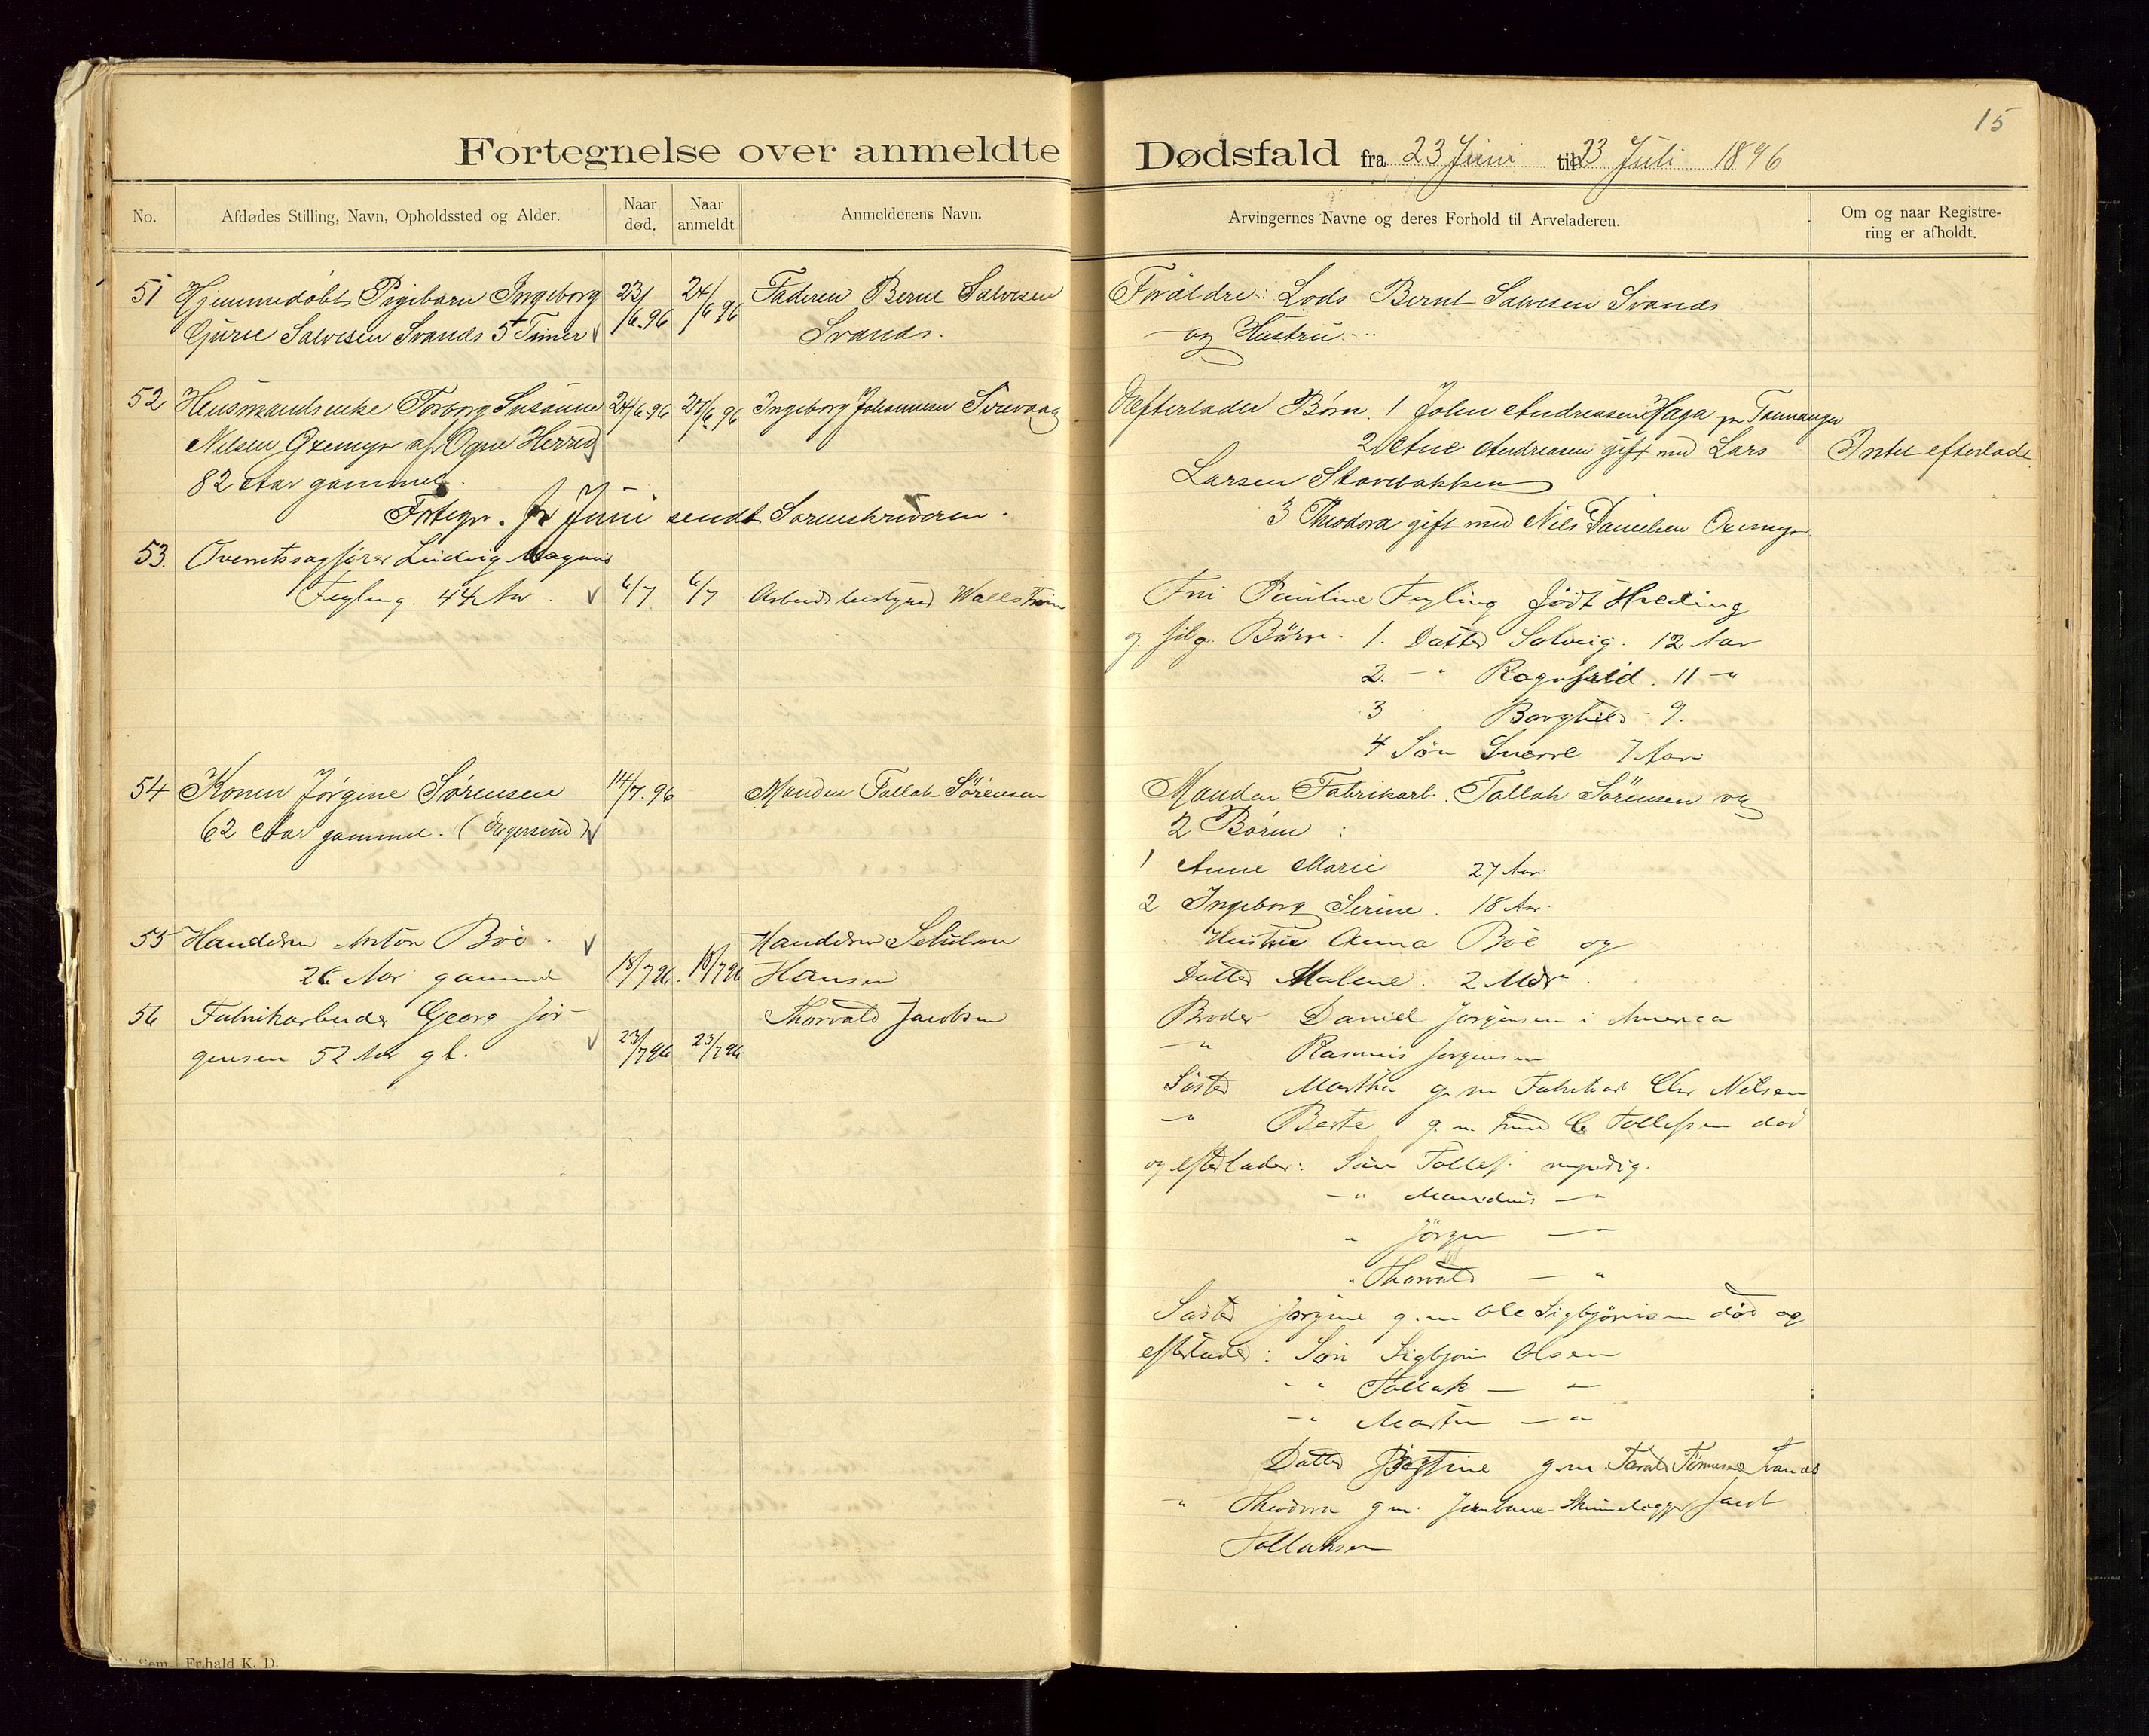 15
Fortegnelse over anmeldte Dødsfald fra 23 Juni til 23 Juli 1896
No.
Afdødes Stilling, Navn, Opholdssted og Alder.
Naar død.
Naar anmeldt
Anmelderens Navn.
Arvingernes Navne og deres Forhold til Arveladeren.
Om og naar Registrering er afholdt.
51 Hjemmedøbt Pigebarn Ingeborg 23/6.96 24/6 96 Faderen Bernt Salvesen
Gurie Salvesen Svanes 5 Timer Svanes.
Forældre: Lods Bernt Salvesen Svanes
og Hustru
52 Husmandsenke Torborg Susanne 24/6 96 27/6 96 Ingeborg Johannesen
Nilsen Oxemyr af Ogne Herred
82 Aar gammel.
Efterlader Børn. 1 John Andreasen Haga pr Tananger
2 Ane Andreasen gift med Lars
Larsen Stavbakken
3 Theodora gift med Nils Danielsen Oxemyr
Intet efterladt
Fortegn. for Juni sendt Sorenskriveren.
53. Overretssagfører Ludvig Magnus
Feyling. 44 Aar. 6/7 6/7 Arbeidsbestyrer Wallstrøm
Fru Pauline Feyling født Hæding
og følg. Børn. 1. Datter Solveig. 12 Aar
2. - " Ragnhild. 11 - "
3 Borghild 9.
4 Søn Sverre 7 Aar
54 Konen Jørgine Sørensen 14/7.96 Manden Tollak Sørensen
62 Aar gammel. (Egersund)
Manden Fabrikarb. Tollak Sørensen og
2 Børn:
1 Anne Marie 27 Aar.
2 Ingeborg Serine. 18 Aar.
55 Handelsm Anton Bøe.
26 Aar gammel 18/7 96. 18/7 96 Hansen
Hustru Anna Bøe og
Datter Malene. 2 Mdr.
56 Fabrikarbeider Georg Jør- Thorvald Jacobsen
gensen 52 Aar gl. 23/7 96 23/7 96
Broder Daniel Jørgensen i Amerika
- " Rasmus Jørgensen
Søster Martha g. m Fabrikarb Chr Nilsen
- " Berte g. m. Tollefsen død
og efterlader: Søn Tollef. myndig.
- " - "
" Jørgen - "
" Thorvald - "
Søster Jørgine g. m Ole Sigbjørnsen død og
efterlader: Søn Sigbjørn Olsen
- " Tollak - "
- " Martin - "
Datter g. m.
- " Theodora g m. Jernbane Jacob
Tollaksen
Sem, Fr.hald K. D.